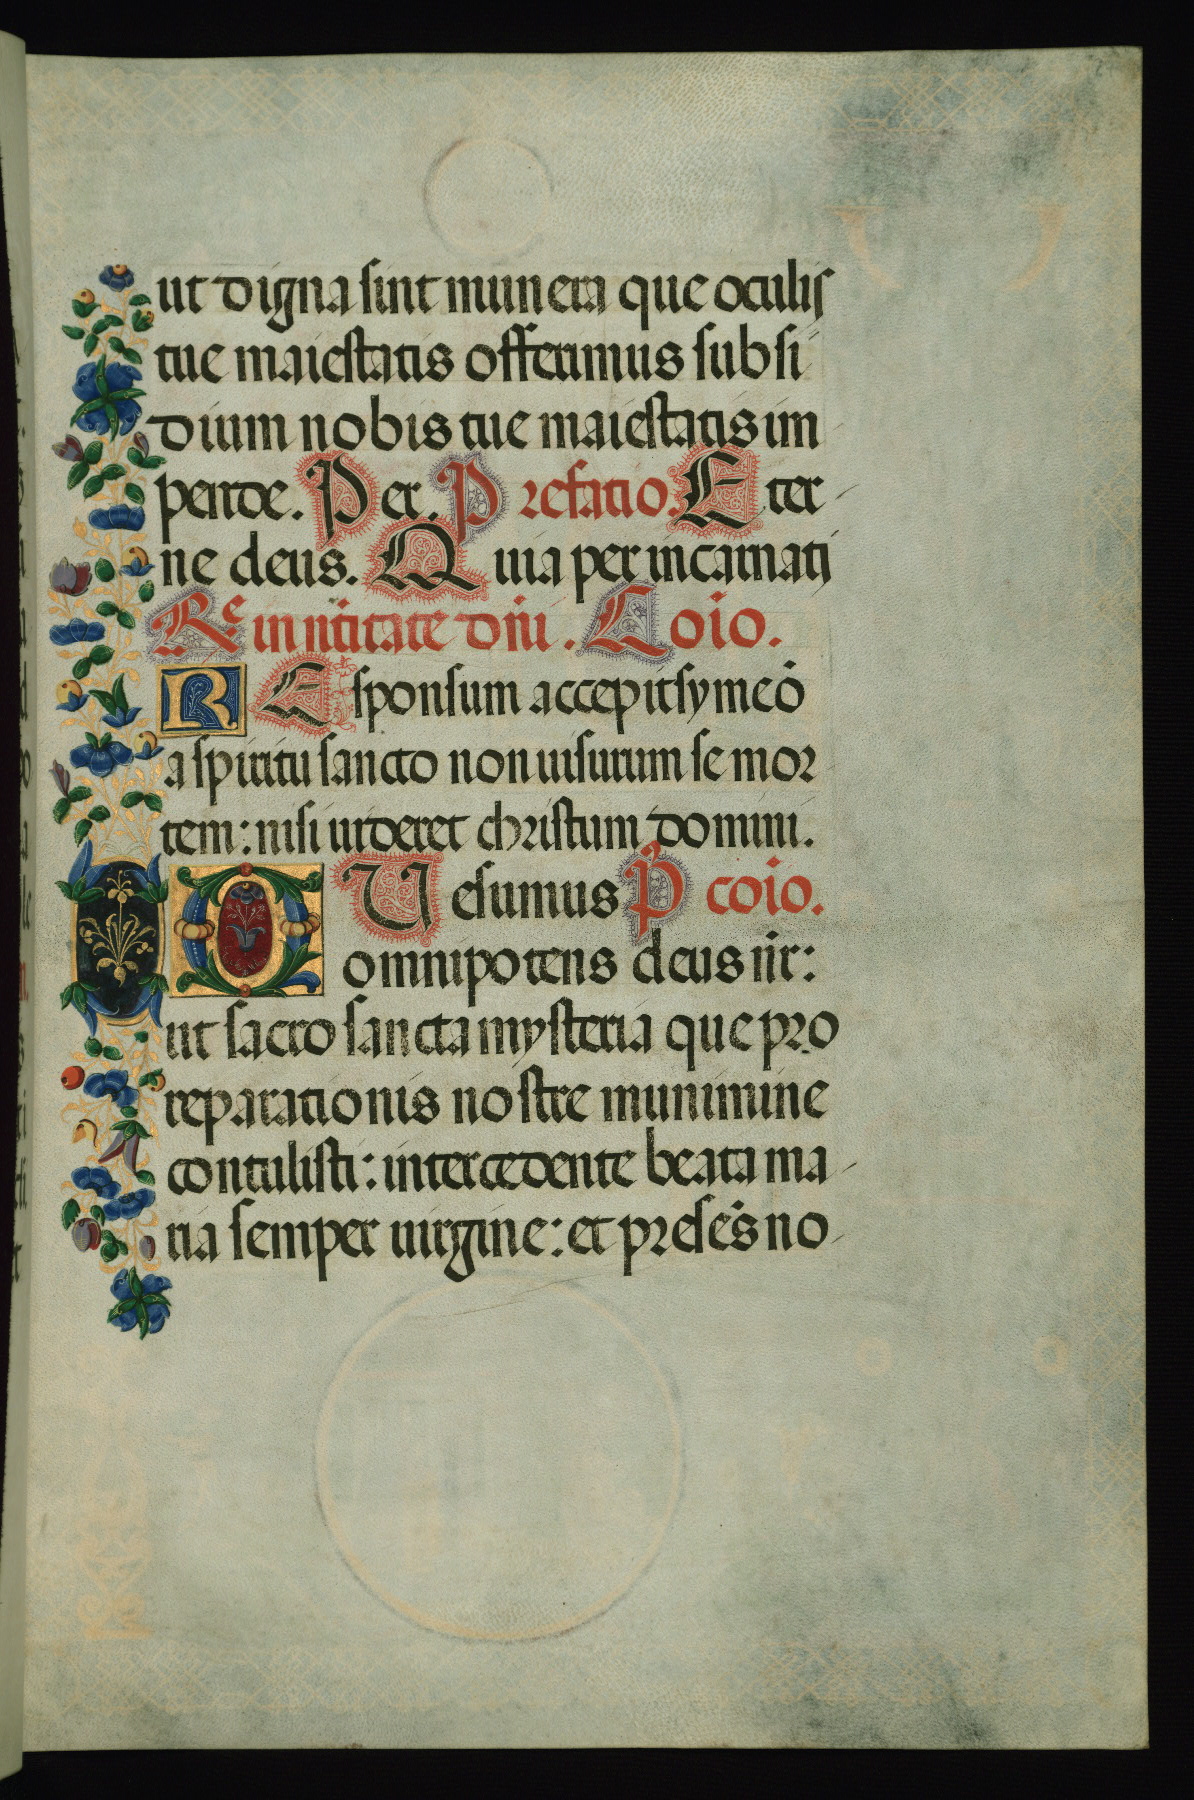 ut digna sint munera que oculis
tue maiestatis offerimus subsi
dium nobis tue maiestatis im
pende. Per. Prefatio. Eter
ne deus. Quia per incarnati
Re in nt̄itate dn̄i. Coīo.
REsponsum accepit symeō
a spiritu sancto non uisurum se mor
tem: nisi uideret christum domini.
QUesumus P̄ coīo.
omnipotens deus nr̄:
ut sacro sancta mysteria que pro
reparationis nostre munimine
contulisti: intercedente beata ma
ria semper uirgine: et presēs no